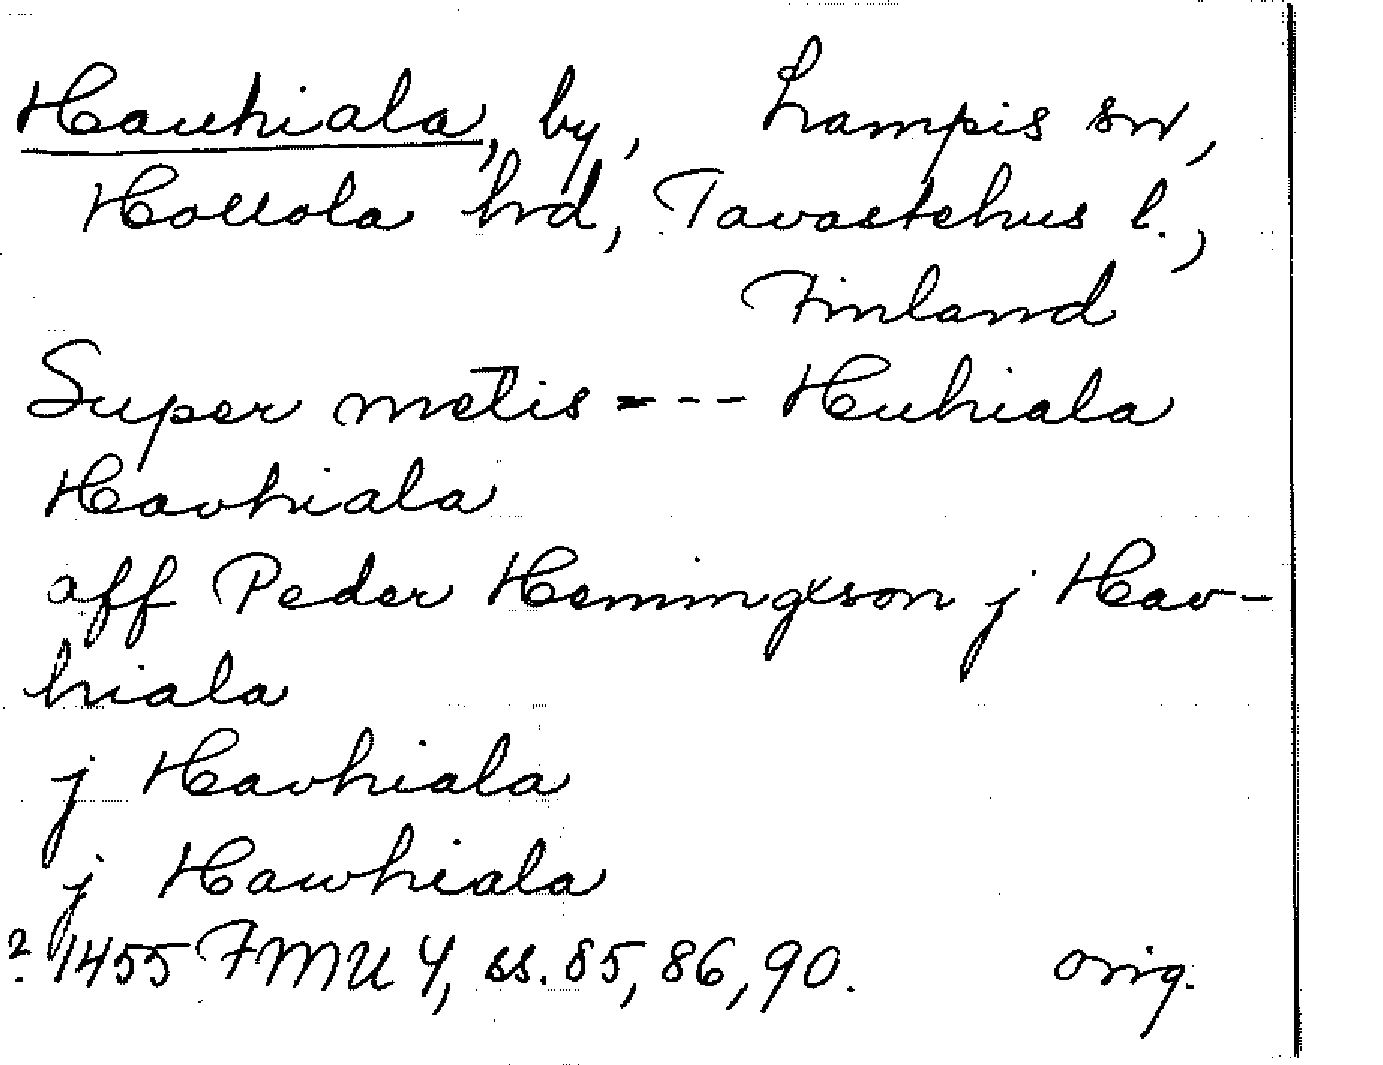 Hauhiala, by, Lampis sn,
Hollola hrd, Tavastehus l.,
Finland
Super metis --- Huhiala
Havhiala
aff Peder Hemingxson j Hav-
hiala
j Havhiala
j Hawhiala
? 1455 FMU 4, ss. 85, 86, 90. orig.